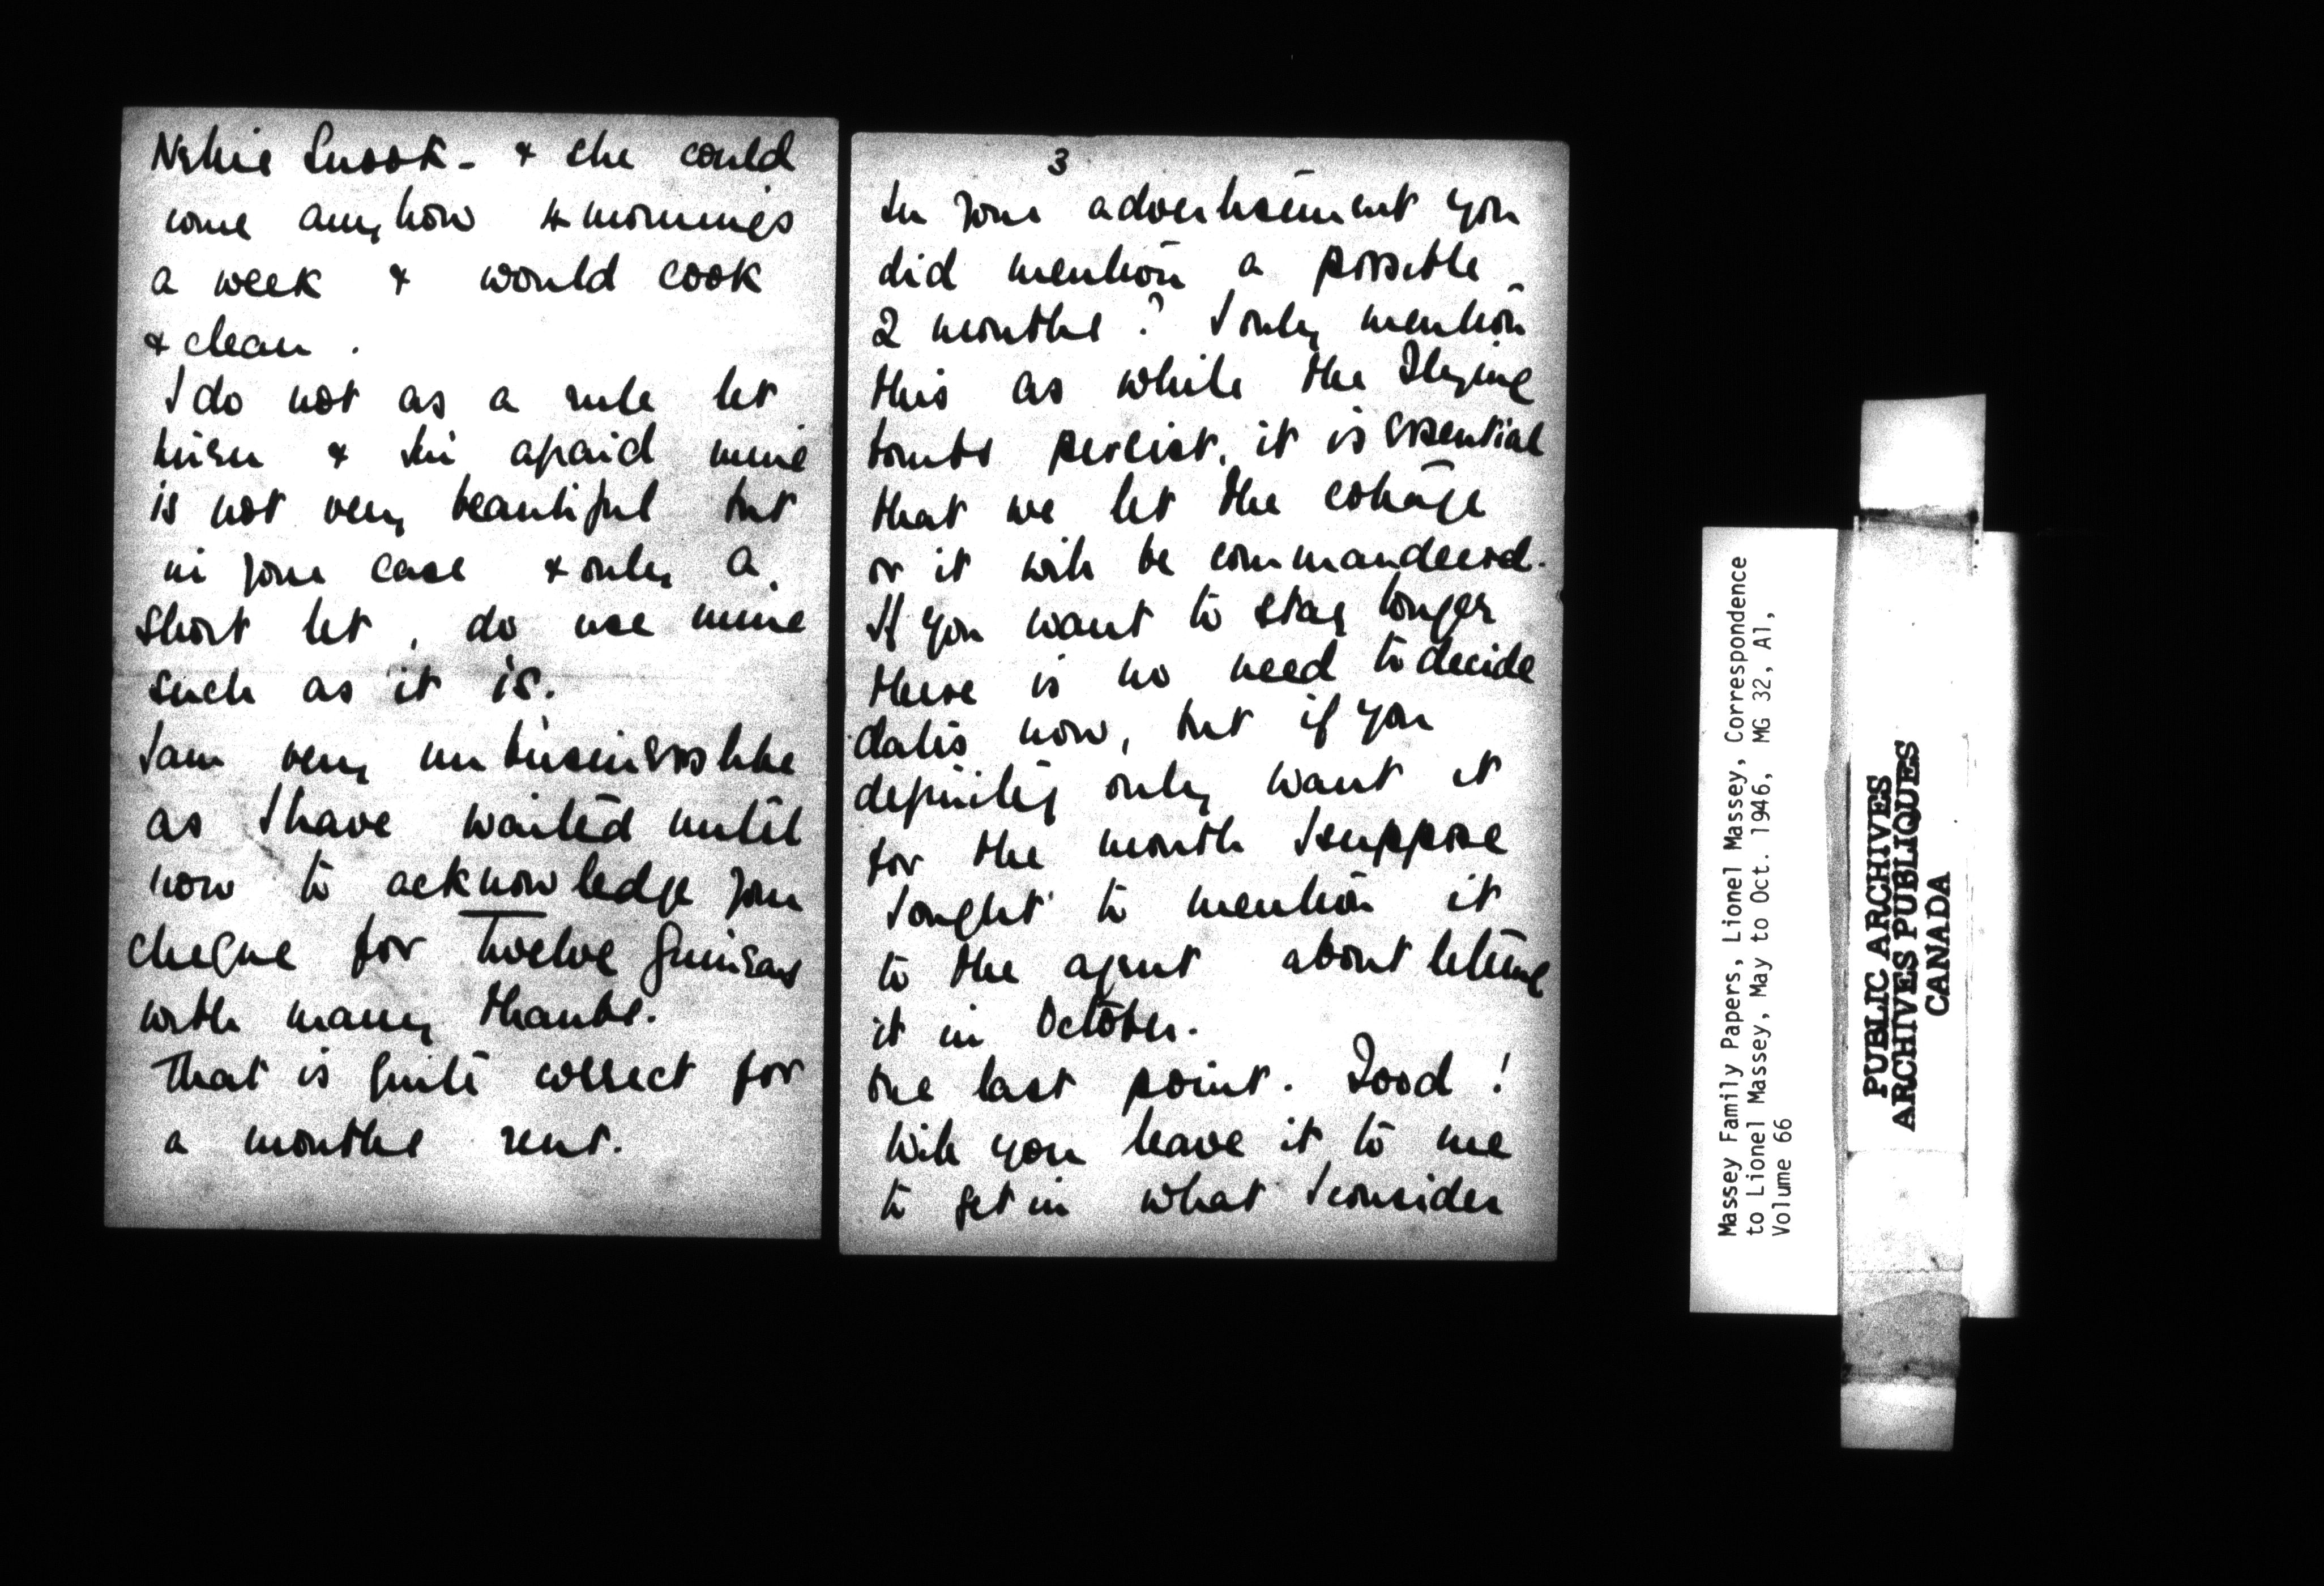 Nellie Snook - & she could
come anyhow 4 mornings
a week & would cook
& clean.
I do not as a rule let
linen & I'm afraid mine
is not very beautiful but
in your case & only a
short let, do use mine
such as it is.
I am very unbusinesslike
as I have waited until
now to acknowledge your
cheque for Twelve guineas
with many thanks.
That is quite correct for
a months rent.
3
In your advertisement you
did mention a possible
2 months? I only mention
this as while the Flying
bombs persist, it is essential
that we let the cottage
or it will be commandeered.
If you want to stay longer
there is no need to decide
dates now, but if you
definitely only want it
for the month I suppose
I ought to mention it
to the agent about letting
it in October.
One last point. Food!
Will you leave it to me
to get in what I consider
Massey Family Papers, Lionel Massey, Correspondence
to Lionel Massey, May to Oct. 1946, MG 32, A1,
Volume 66
PUBLIC ARCHIVES
ARCHIVES PUBLIQUES
CANADA